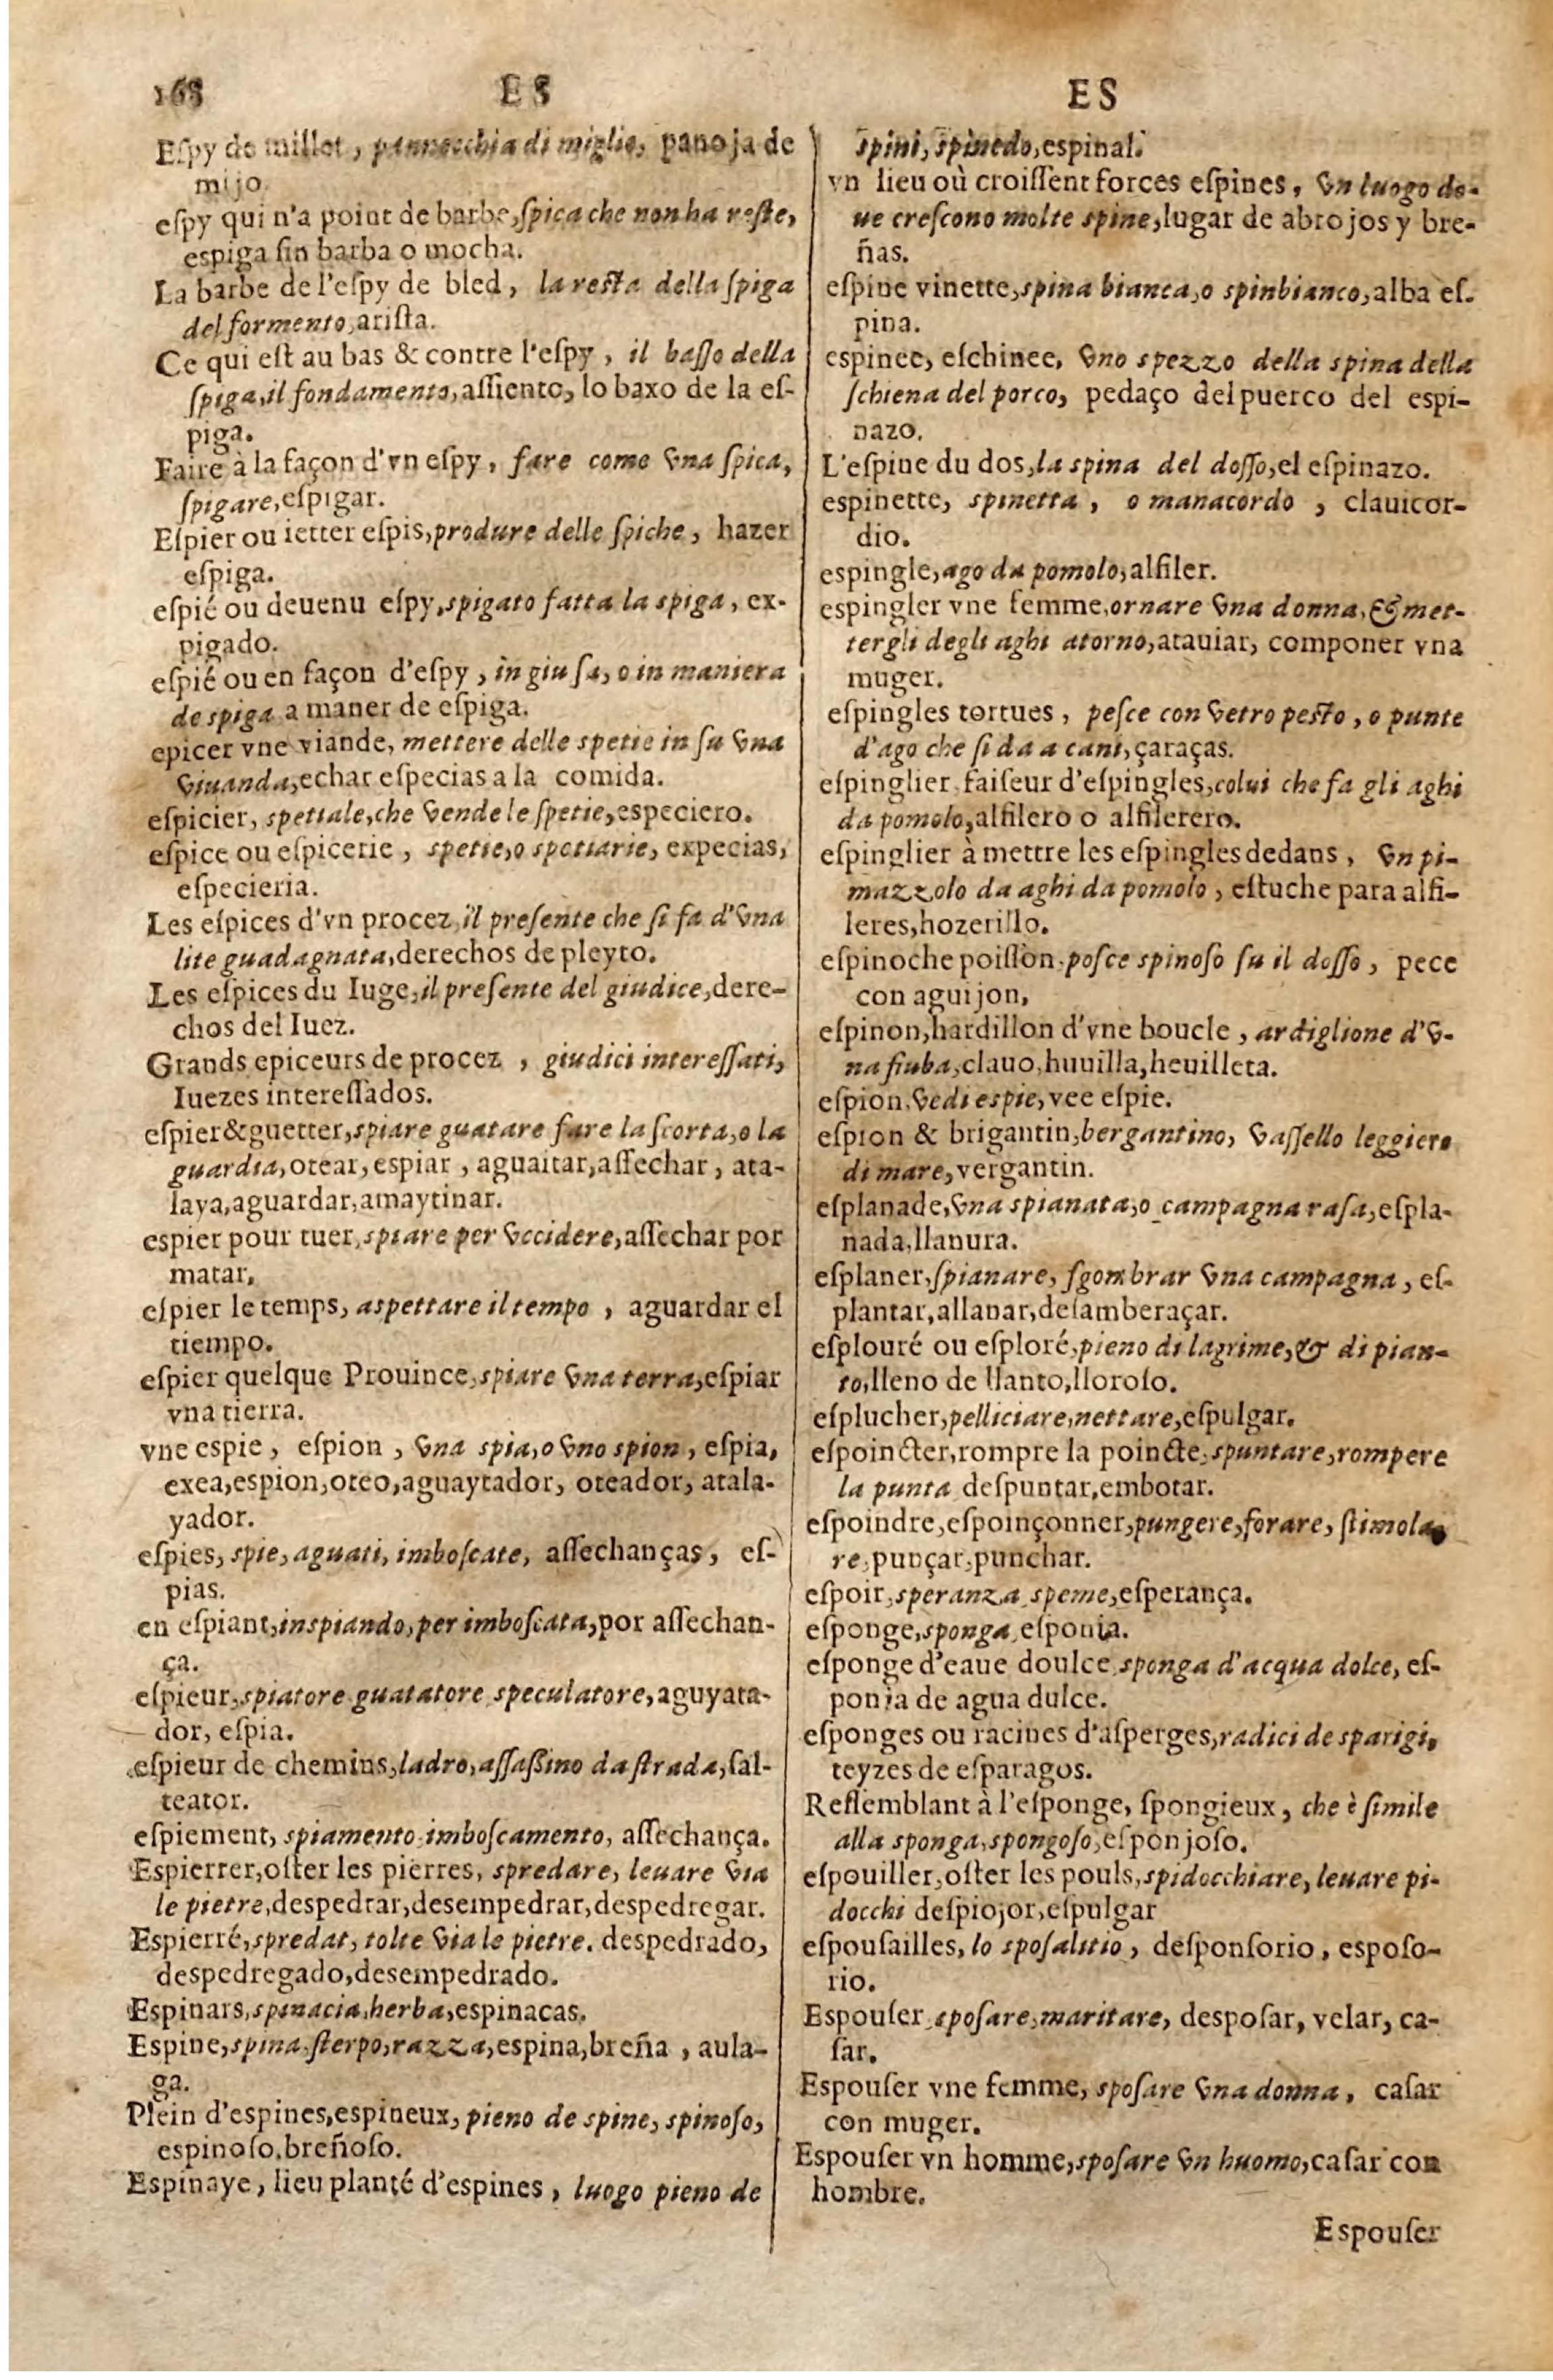 168 ES
Eſpy de millet, pannocchia di miglio, panoja de
mijo
eſpy qui n'a point de barbe, ſpica che non ha reſte,
espiga ſin barba o mocha.
La barbe de l'eſpy de bled, la reſta della ſpiga
del formento, ariſta.
Ce qui eſt au bas & contre l'eſpy, il baſſo della
ſpiga, il fondamento, aſſiento, lo baxo de la eſ-
piga.
Faire à la façon d'vn eſpy, fare come vna ſpica,
ſpigare, eſpigar.
Eſpier ou ietter eſpis, produre delle ſpiche, hazer
eſpiga.
eſpié ou deuenu eſpy, spigato fatta la spiga, ex-
pigado.
eſpié ou en façon d'eſpy, in giu ſa, o in maniera
de spiga a maner de eſpiga.
epicer vne viande, mettere delle spetie in ſu vna
viuanda, echar eſpecias a la comida.
eſpicier, spettale, che vende le ſpetie, especiero.
eſpice ou eſpicerie, spetie, o spetiarie, expecias,
eſpecieria.
Les eſpices d'vn procez, il preſente che ſi fa d'vna
lite guadagnata, derechos de pleyto.
Les eſpices du Iuge, il preſente del giudice, dere-
chos del Iuez.
Grands epiceurs de procez, giudici intereſſati,
Iuezes intereſſados.
eſpier & guetter, spiare guatare fare la ſcorta, o la
guardia, otear, espiar, aguaitar, aſſechar, ata-
laya, aguardar, amaytinar.
espier pour tuer, spiare per vccidere, aſſechar por
matar,
eſpier le temps, aspettare il tempo, aguardar el
tiempo.
eſpier quelque Prouince, spiare vna terra, eſpiar
vna tierra.
vne espie, eſpion, vna spia, o vno spion, eſpia,
exea, espion, oteo, aguaytador, oteador, atala-
yador.
eſpies, spie, aguati, imboſcate, aſſechanças, eſ-
pias.
en eſpiant, inspiando, per imboſcata, por aſſechan-
ça.
eſpieur, spiatore guatatore speculatore, aguyata-
dor, eſpia.
eſpieur de chemins, ladro, aſſaßino da ſtrada, ſal-
teator.
eſpiement, spiamento imboſcamento, aſſechança.
Espierrer, oſter les pierres, spredare, leuare via
le pietre, despedrar, desempedrar, despedregar.
Espierré, spredat, tolte via le pietre. despedrado,
despedregado, desempedrado.
Espinars, spinacia, herba, espinacas.
Espine, spina ſterpo, razza, espina, breña, aula-
ga.
Plein d'espines, espineux, pieno de spine, spinoſo,
espinoſo, breñoſo.
Espinaye, lieu planté d'espines, luogo pieno de
ES
spini, spinedo, espinal.
vn lieu où croiſſent forces eſpines, vn luogo do-
ue creſcono molte spine, lugar de abrojos y bre-
ñas.
eſpine vinette, spina bianca, o spinbianco, alba eſ-
pina.
espinee, eſchinee, vno spezzo della spina della
ſchiena del porco, pedaço del puerco del espi-
nazo.
L'eſpine du dos, la spina del doſſo, el eſpinazo.
espinette, spinetta, o manacordo, clauicor-
dio.
espingle, ago da pomolo, alfiler.
espingler vne femme, ornare vna donna, & met-
tergli degli aghi atorno, atauiar, componer vna
muger.
eſpingles tortues, peſce con vetro peſto, o punte
d'ago che ſi da a cani, çaraças.
eſpinglier faiſeur d'eſpingles, colui che fa gli aghi
da pomolo, alfilero o alfilerero.
eſpinglier à mettre les eſpingles dedans, vn pi-
mazzolo da aghi da pomolo, eſtuche para alfi-
leres, hozerillo.
eſpinoche poiſſon, posce spinoſo ſu il doſſo, pece
con aguijon,
eſpinon, hardillon d'vne boucle, ardiglione d'v-
na fiuba, clauo, huuilla, heuilleta.
eſpion, vedi espie, vee eſpie.
eſpion & brigantin, bergantino, vaſſello leggiero
di mare, vergantin.
eſplanade, vna spianata, o campagna raſa, eſpla-
nada, llanura.
eſplaner, ſpianare, ſgombrar vna campagna, eſ-
plantar, allanar, deſamberaçar.
eſplouré ou eſploré, pieno di lagrime, & di pian-
to, lleno de llanto, lloroſo.
eſplucher, pelliciare, nettare, eſpulgar.
eſpoincter, rompre la poincte, spuntare, rompere
la punta deſpuntar, embotar.
eſpoindre, eſpoinçonner, pungere, forare, ſtimola-
re, punçar, punchar.
eſpoir, speranza speme, eſperança.
eſponge, sponga eſponia.
eſponge d'eaue doulce, sponga d'acqua dolce, eſ-
ponja de agua dulce.
eſponges ou racines d'aſperges, radici de sparigi,
teyzes de eſparagos.
Reſſemblant à l'eſponge, ſpongieux, che è ſimile
alla sponga, spongoſo, eſponjoſo.
eſpouiller, oſter les pouls, spidocchiare, leuare pi-
docchi deſpiojor, eſpulgar
eſpouſailles, lo spoſalitio, deſponſorio, espoſo-
rio.
Espouſer, spoſare, maritare, despoſar, velar, ca-
ſar.
Espouſer vne femme, spoſare vna donna, caſar
con muger.
Espouſer vn homme, spoſare vn huomo, caſar con
hombre.
Espouſer